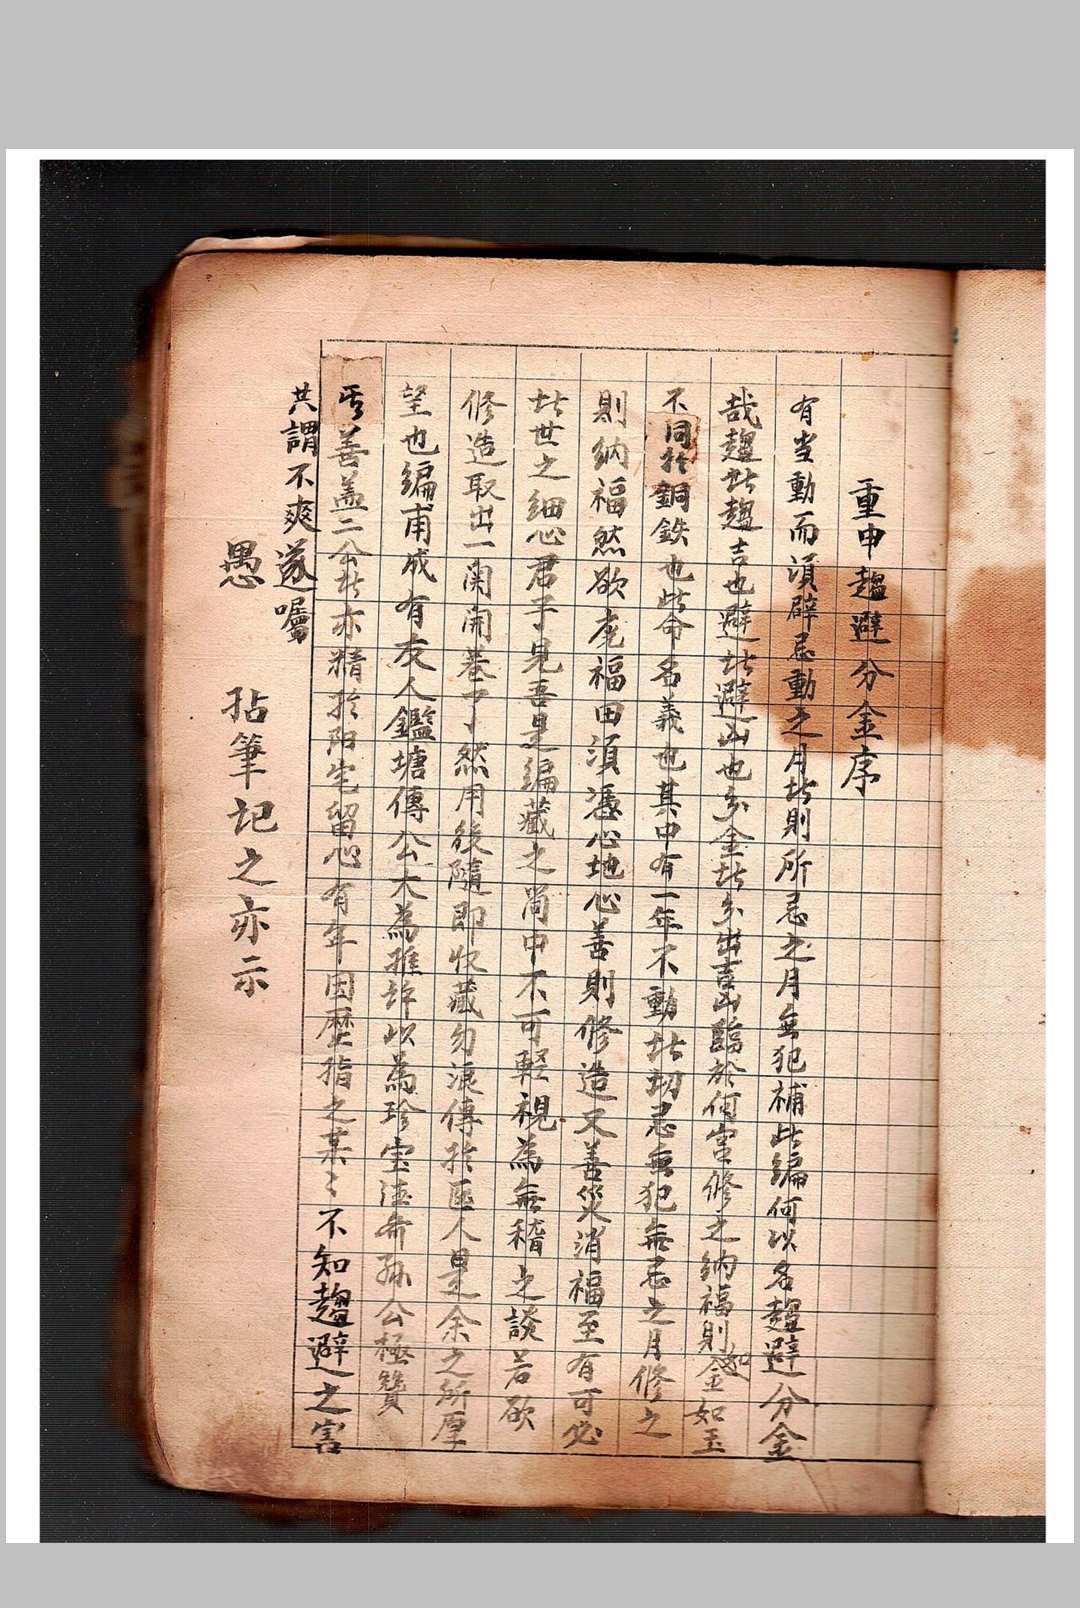 重申趨避分金序
有當動而須辟忌動之月者則所忌之月無犯補此編何以名趨避分金
哉趨者趨吉也避者避凶也分金者分出吉凶臨於何宮修之納福則如金如玉
不同於銅鉄也此命名義也其中有一年不動者切忌無犯無忌之月修之
則納福然欲庇福田須憑心地心善則修造又善災消福至有可必
者世之細心君子見吾是編藏之笥中不可軽視為無稽之談若欲
修造取出一閱開卷了了然用後隨即收藏勿浪傳於匪人是余之所厚
望也編甫成有友人鑑塘傳公大為推許以為珍宝 公極贊
善蓋二公者亦精於陽宅留心有年因歷指之某〻不知趨避之害
共謂不爽遂囑
愚 拈筆記之亦示